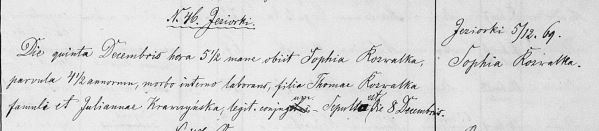 N. 46. Jeziorki.
Die quinta Decembris hora 5 1/2 mane obiit Sophia Kozratka,
parvula 4 1/2 annorum, morbo interno laborans, filia Thomae Kozratka
famuli et Juliannae Krawzyńska, legit. conjug. – Sepulta est die 8 Decembris.
Jeziorki 5/12. 69.
Sophia Kozratka.